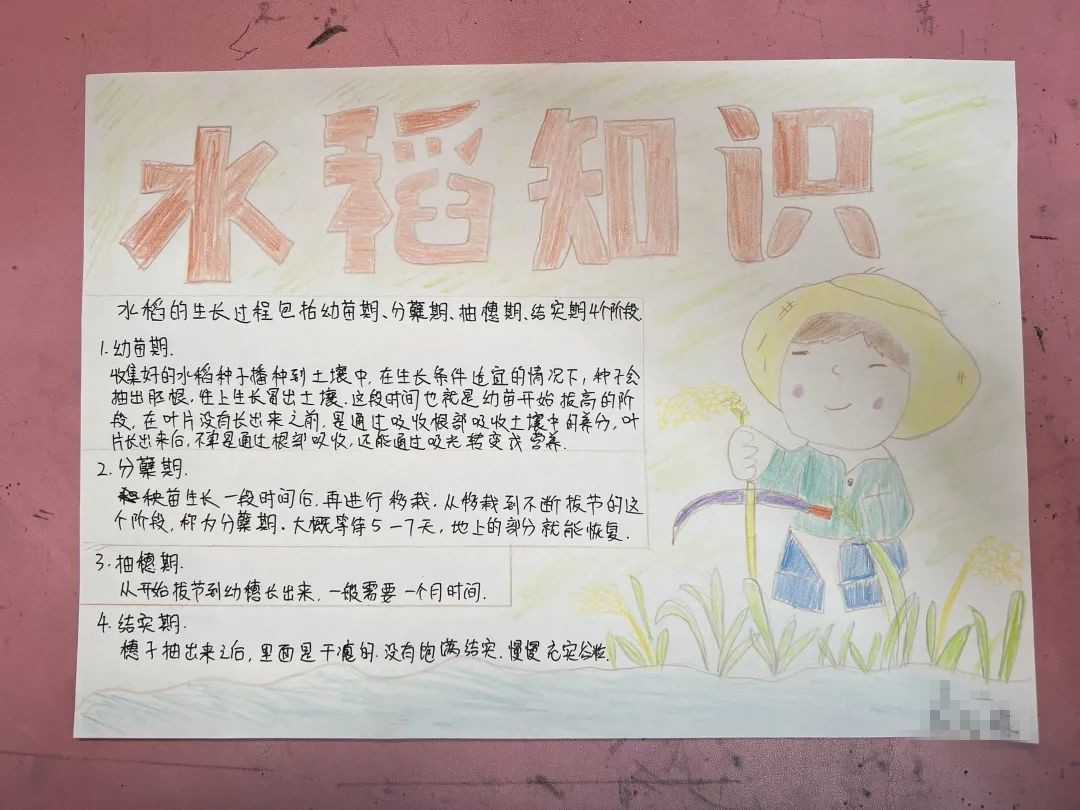 水稻知识
水稻的生长过程包括幼苗期、分蘖期、抽穗期、结实期4个阶段
1.幼苗期.
收集好的水稻种子播种到土壤中,在生长条件适宜的情况下,种子会
抽出胚根,往上生长冒出土壤.这段时间也就是幼苗开始拔高的阶
段,在叶片没有长出来之前,是通过吸收根部吸收土壤中的养分,叶
片长出来后,不单是通过根部吸收,还能通过吸光转变成营养.
2.分蘖期.
秧苗生长一段时间后,再进行移栽.从移栽到不断拔节的这
个阶段,称为分蘖期.大概等待5-7天,地上的部分就能恢复.
3.抽穗期.
从开始拔节到幼穗长出来,一般需要一个月时间.
4.结实期.
穗子抽出来之后,里面是干瘪的.没有饱满结实.慢慢充实谷粒.